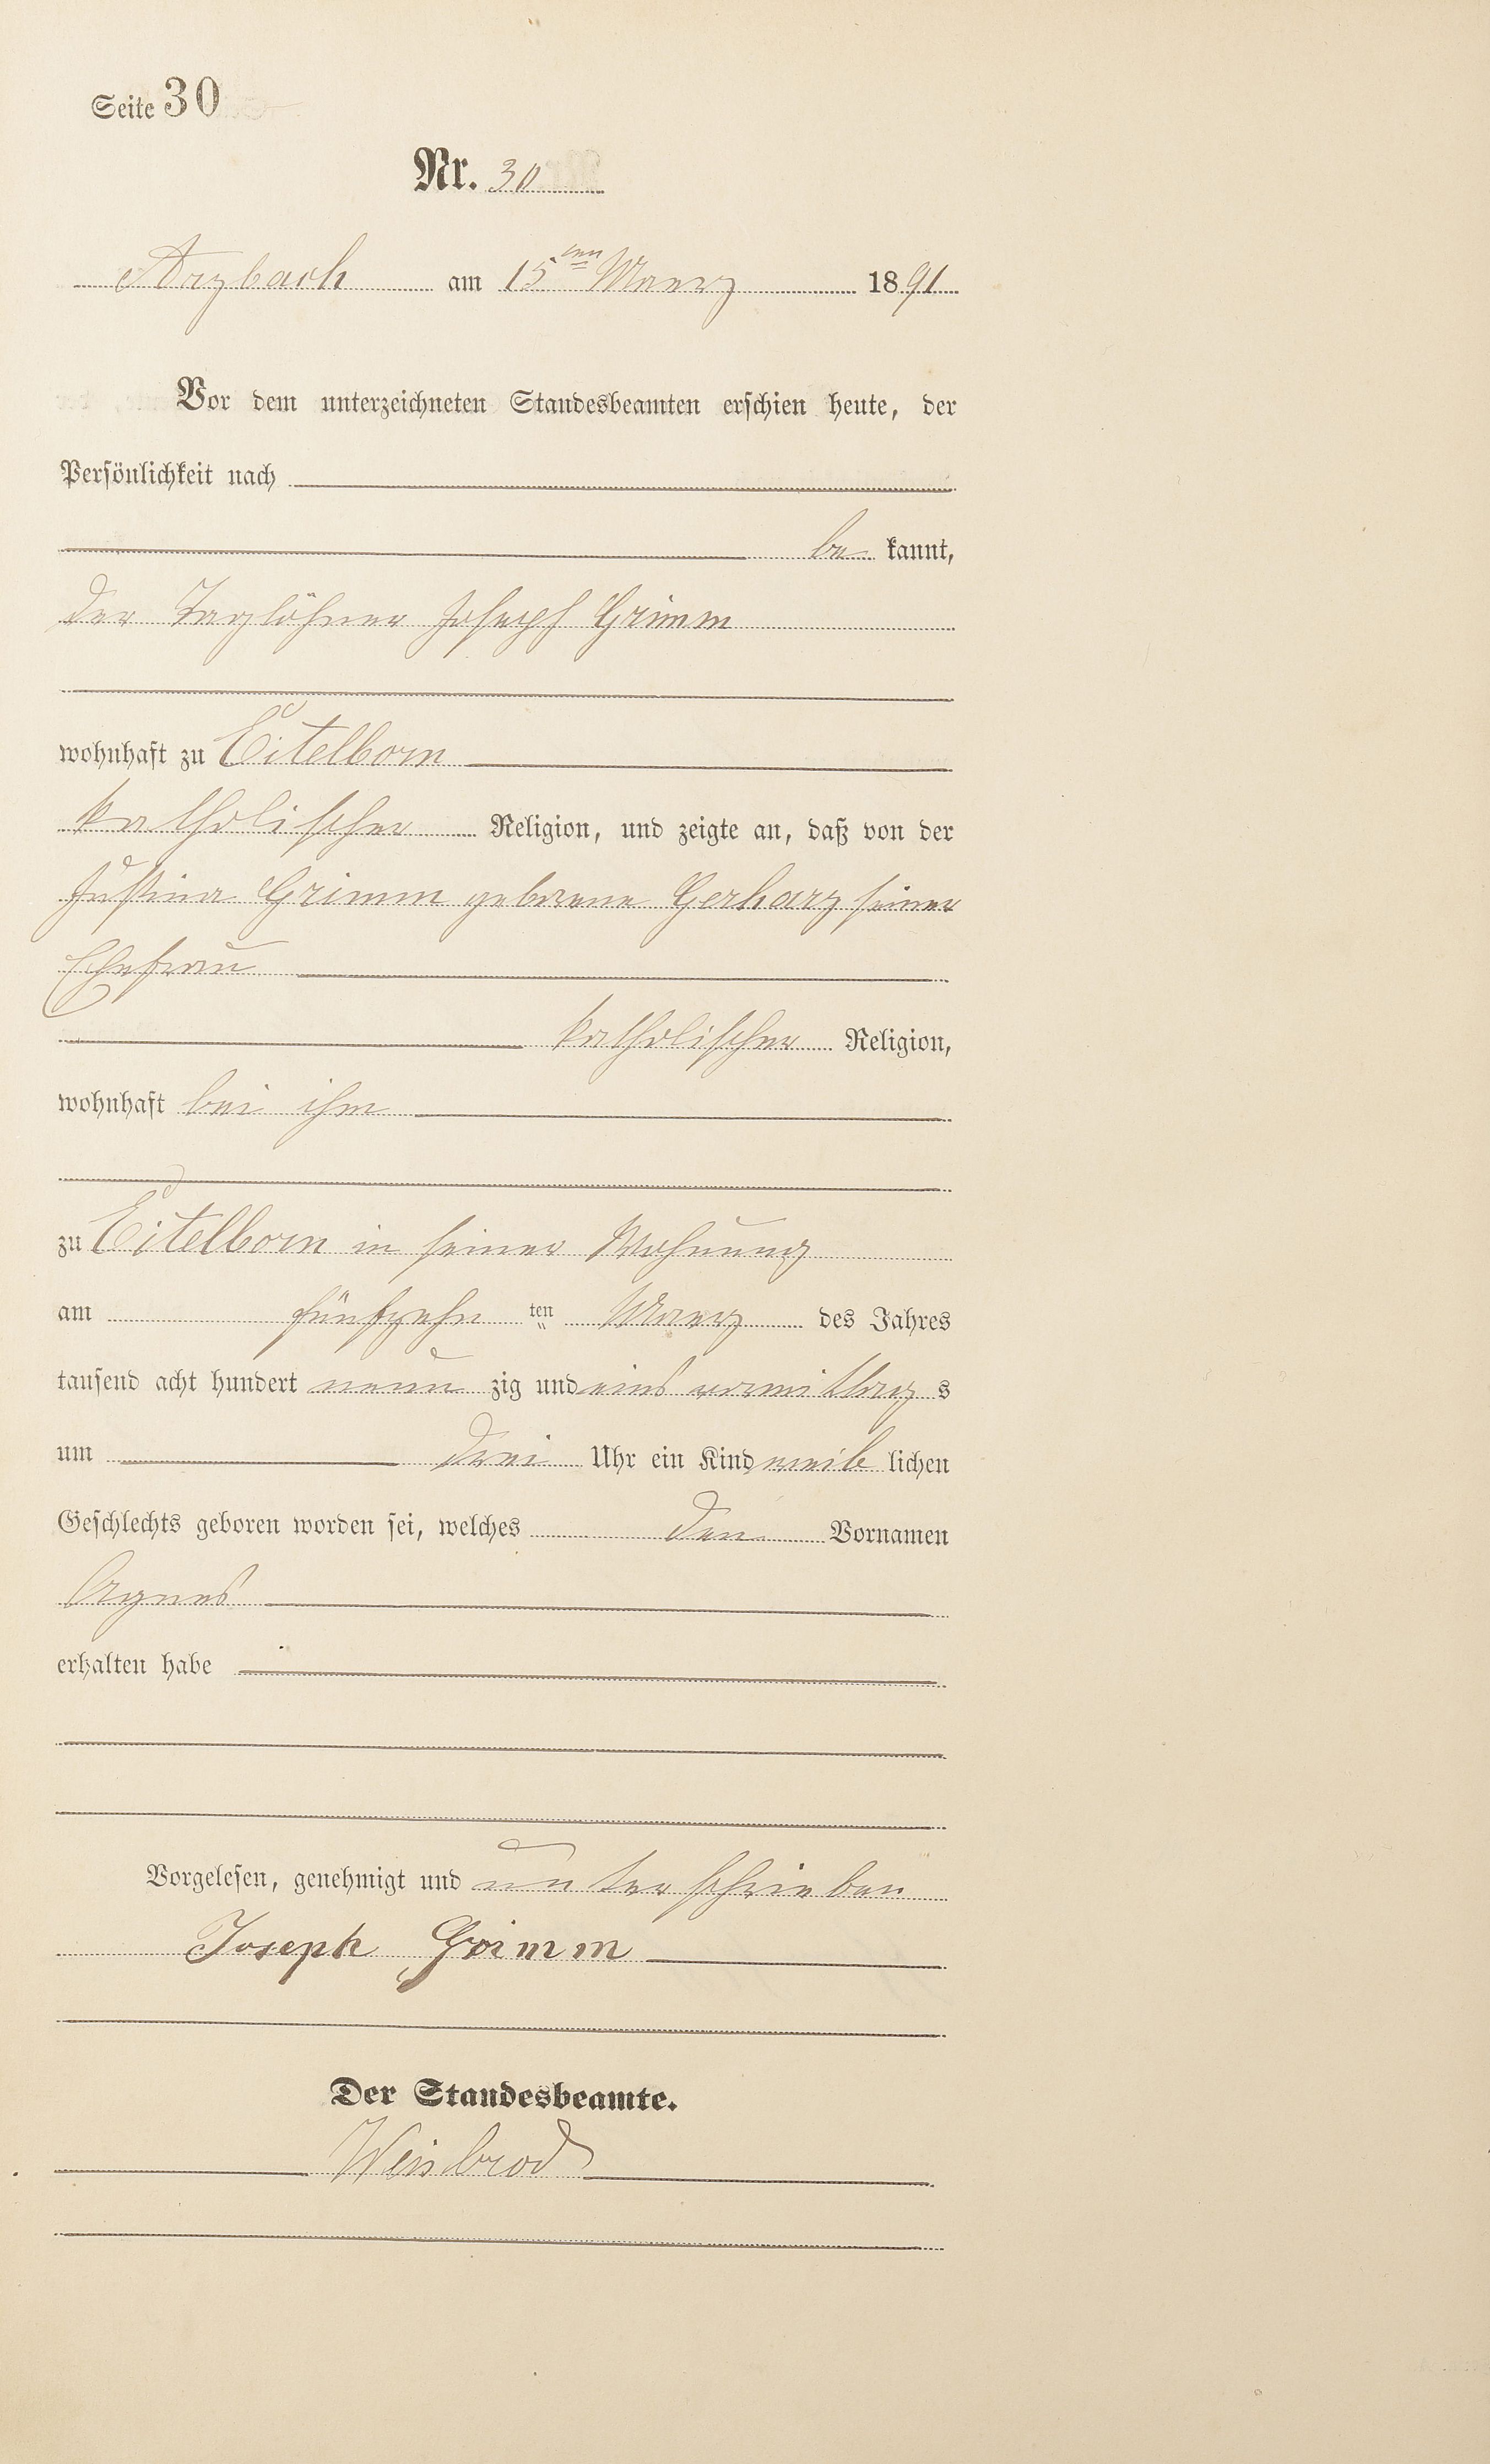 Seite 30
Nr. 30
Arzbach am 15ten Maerz 1891
Vor dem unterzeichneten Standesbeamten erschien heute, der
Persönlichkeit nach
be kannt,
der Taglöhner Joseph Grimm
wohnhaft zu Eitelborn
katholischer Religion, und zeigte an, daß von der
Justina Grimm geborene Gerharz seiner
Ehefrau
katholischer Religion,
wohnhaft bei ihm
zu Eitelborn in seiner Wohnung
am fünfzehn ten Maerz des Jahres
tausend acht hundert neun zig und eins vormittag s
um drei Uhr ein Kind weib lichen
Geschlechts geboren worden sei, welches den Vornamen
Agnes
erhalten habe
Vorgelesen, genehmigt und unterschrieben
Joseph Grimm
Der Standesbeamte.
Weisbrod